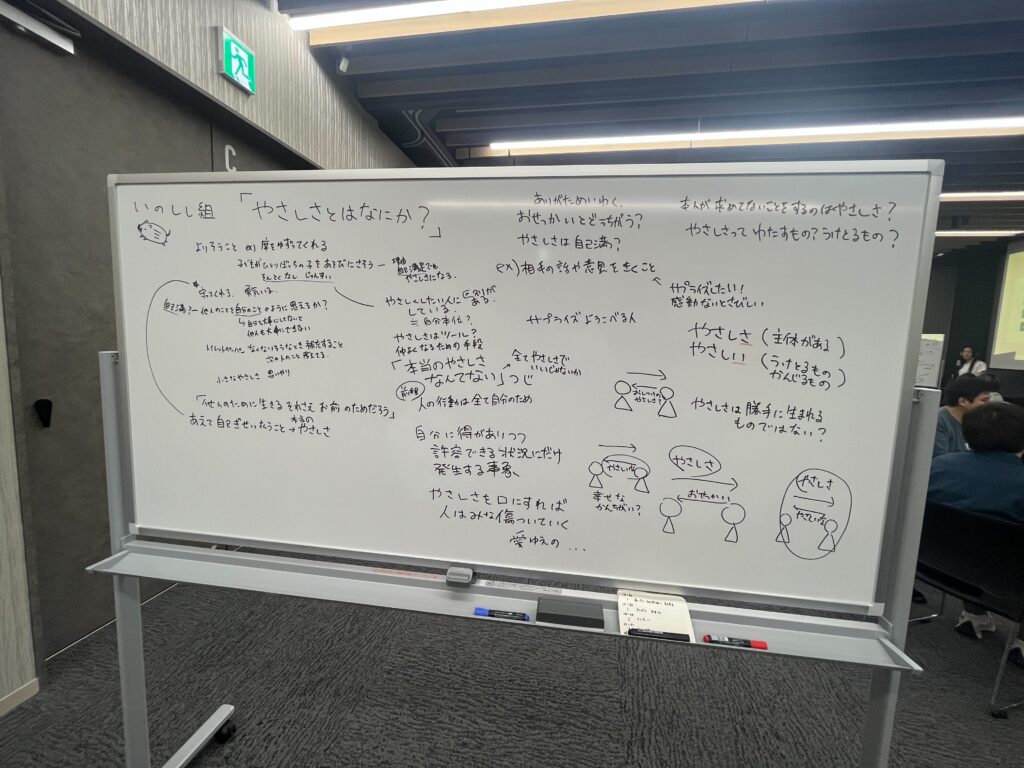 C
いのしし組 「やさしさとはなにか？」
よりそうこと ex) 席をゆずってくれる
自己満？ー他人のことを自分のことのように思えるか？
↳自分を大事にしないと
他人も大事にできない
なくなりそうなとき補充すること
次の人のこと考えてる。
小さなやさしさ 思いやり
「他人のために生きる それさえ お前のためだろう」
あえて自己ぎせい
本当の
やさしさ
理由
自己満足でも
やさしさになる。
やさしくしたい人に
している。
区別が
ある。
≒自分本位？
やさしさはツール？
仲よくなるための手段
「本当のやさしさ
なんてない」つじ
全てやさしさで
いいじゃないか
前提
人の行動は全て自分のため
自分に得がありつつ
許容できる状況にだけ
発生する事象
やさしさを口にすれば
人はみな傷ついていく
愛ゆえの…
ありがためいわく。
おせっかいとどっちがう？
やさしさは自己満？
ex)相手の話や意見をきくこと
サプライズしたい！
感動ないとさびしい
サプライズ よろこべる人
本人が求めてないことをするのはやさしさ？
やさしさって わたすもの？うけとるもの？
やさしさ（主体がある）
やさしい（うけとるもの
かんじるもの）
おしつけの
やさしさ？
やさしさは勝手に生まれる
ものではない？
やさしいな
幸せな
かんちがい？
やさしさ
おせっかい
やさしさ
やさしいな